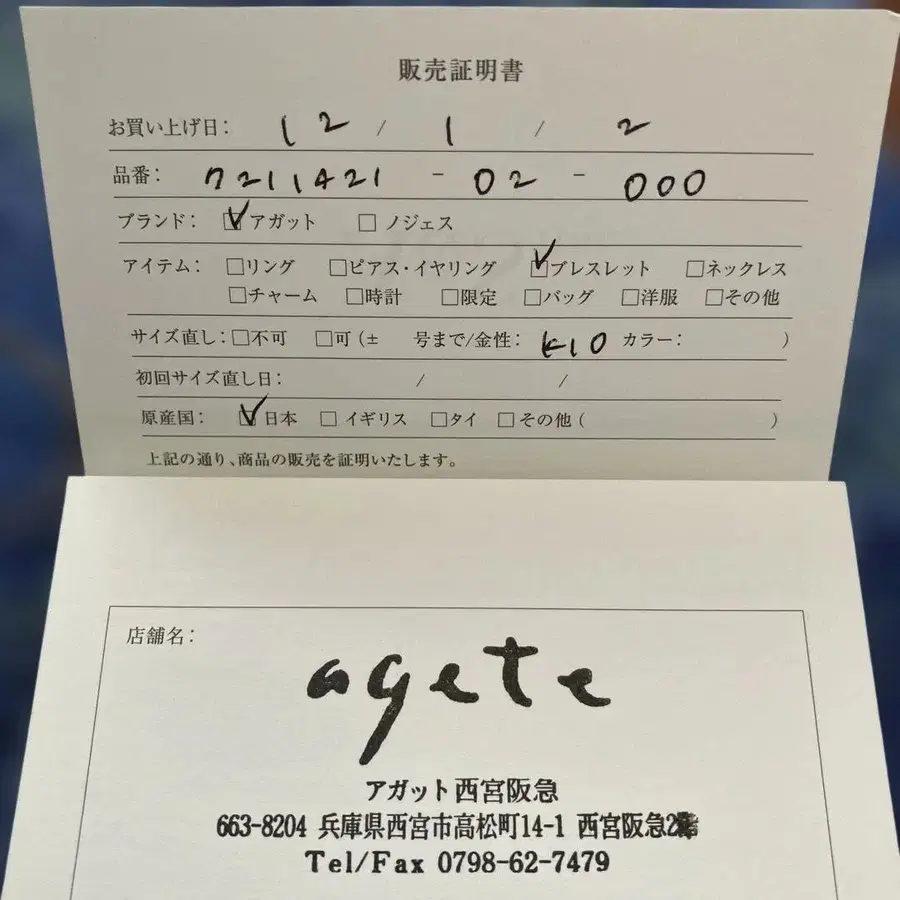 販売証明書
お買い上げ日： 12 / 1 / 2
品番： 7211421 - 02 - 000
ブランド： □アガット □ノジェス
アイテム： □リング □ピアス・イヤリング □ブレスレット □ネックレス
□チャーム □時計 □限定 □バッグ □洋服 □その他
サイズ直し：□不可 □可（± 号まで/金性： K10 カラー： ）
初回サイズ直し日： / /
原産国： □日本 □イギリス □タイ □その他（ ）
上記の通り、商品の販売を証明いたします。
店舗名：
agete
アガット西宮阪急
663-8204 兵庫県西宮市高松町14-1 西宮阪急2階
Tel/Fax 0798-62-7479